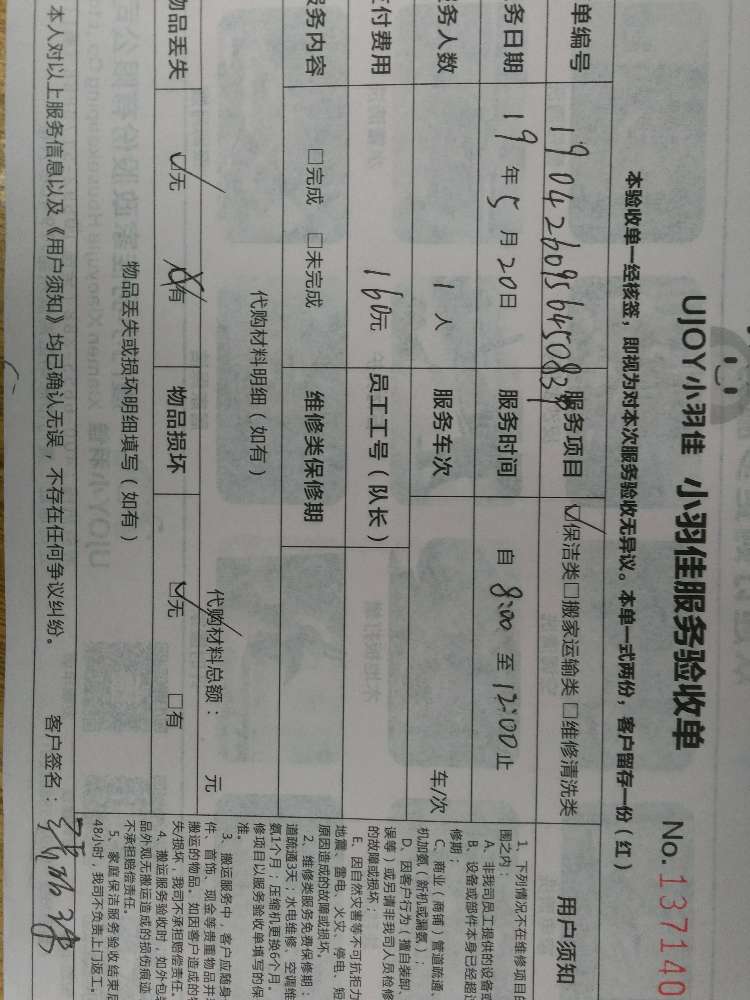 UJOY小羽佳 小羽佳服务验收单
No. 137140
本验收单一经核签，即视为对本次服务验收无异议。本单一式两份，客户留存一份（红）
单编号
服务项目 ☑保洁类□搬家运输类 □维修清洗类
务日期 19 年 5 月 20 日 服务时间 自 8:00 至 12:00 止
务人数 1 人 服务车次 车/次
付费用 160元 员工工号（队长）
服务内容 □完成 □未完成 维修类保修期
代购材料明细（如有）
代购材料总额： 元
物品丢失 ☑无 有 物品损坏 ☑无 □有
物品丢失或损坏明细填写（如有）
本人对以上服务信息以及《用户须知》均已确认无误，不存在任何争议纠纷。 客户签名：
用户须知
1、下列情况不在维修项目的
围之内：
A、非我司员工提供的设备或
B、设备或部件本身已经超过
修期；
C、商业（商铺）管道疏通、
机加氨（新机或漏氨）；
D、因客户行为（擅自装卸、
误等）或另请非我司人员检修
的故障或损坏；
E、因自然灾害等不可抗拒力
地震、雷电、火灾、停电、短
原因造成的故障或损坏。
2、维修类服务免费保修期：
道疏通3天；水电维修、空调维
氨1个月；压缩机更换6个月。
修项目以服务验收单填写的保
准。
3、搬运服务中，客户应随身
件、首饰、现金等贵重物品并
搬运的物品。如因客户造成的
失/损坏，我司不承担赔偿责任。
4、搬运服务验收时，如外包装
品外观无搬运造成的损伤痕迹
不承担赔偿责任。
5、家庭保洁服务验收结束后
48小时，我司不负责上门返工。